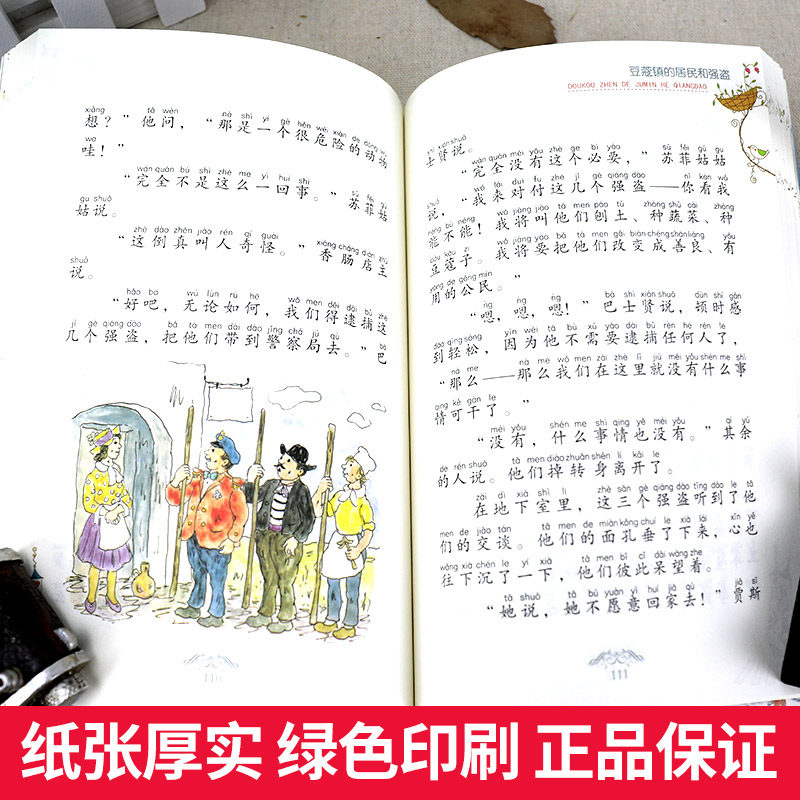 xiǎng tā wèn nà shì yí gè hěn wēi xiǎn de dòng wù
想？”他问，“那是一个很危险的动物
wa
哇！”
wán quán bú shì zhè me yì huí shì sū fēi
“完全不是这么一回事。”苏菲姑
gu shuō
姑说。
zhè dào zhēn jiào rén qí guài xiāng cháng diàn zhǔ
“这倒真叫人奇怪。”香肠店主
shuō
说。
hǎo ba wú lùn rú hé wǒ men děi dài bǔ zhè
“好吧，无论如何，我们得逮捕这
jǐ gè qiáng dào bǎ tā men dài dào jǐng chá jú qù bā
几个强盗，把他们带到警察局去。”巴
110
豆蔻镇的居民和强盗
DOUKOU ZHEN DE JUMIN HE QIANGDAO
shì xián shuō
士贤说。
wán quán méi yǒu zhè ge bì yào sū fēi gū gu
“完全没有这个必要，”苏菲姑姑
shuō wǒ lái duì fu zhè jǐ gè qiáng dào nǐ kàn wǒ
说，“我来对付这几个强盗——你看我
néng bù néng wǒ jiāng jiào tā men páo tǔ zhòng shū cài zhòng
能不能！我将叫他们刨土、种蔬菜、种
dòu kòu zǐ wǒ jiāng yào bǎ tā men gǎi biàn chéng shàn liáng yǒu
豆蔻子。我将要把他们改变成善良、有
yòng de gōng mín
用的公民。”
ńg ńg ńg bā shì xián shuō dùn shí gǎn
“嗯，嗯，嗯！”巴士贤说，顿时感
dào qīng sōng yīn wèi tā bù xū yào dài bǔ rèn hé rén le
到轻松，因为他不需要逮捕任何人了，
nà me nà me wǒ men zài zhè lǐ jiù méi yǒu shén me shì
“那么——那么我们在这里就没有什么事
qing kě gàn le
情可干了。”
méi yǒu shén me shì qing yě méi yǒu qí yú
“没有，什么事情也没有。”其余
de rén shuō tā men diào zhuǎn shēn lí kāi le
的人说。他们掉转身离开了。
zài dì xià shì lǐ zhè sān gè qiáng dào tīng dào le tā
在地下室里，这三个强盗听到了他
men de jiāo tán tā men de miàn kǒng chuí le xià lái xīn yě
们的交谈。他们的面孔垂了下来，心也
wǎng xià chén le yí xià tā men bǐ cǐ dāi wàng zhe
往下沉了一下，他们彼此呆望着。
tā shuō tā bú yuàn yì huí jiā qù jiǎ sī
“她说，她不愿意回家去！”贾斯
111
纸张厚实 绿色印刷 正品保证